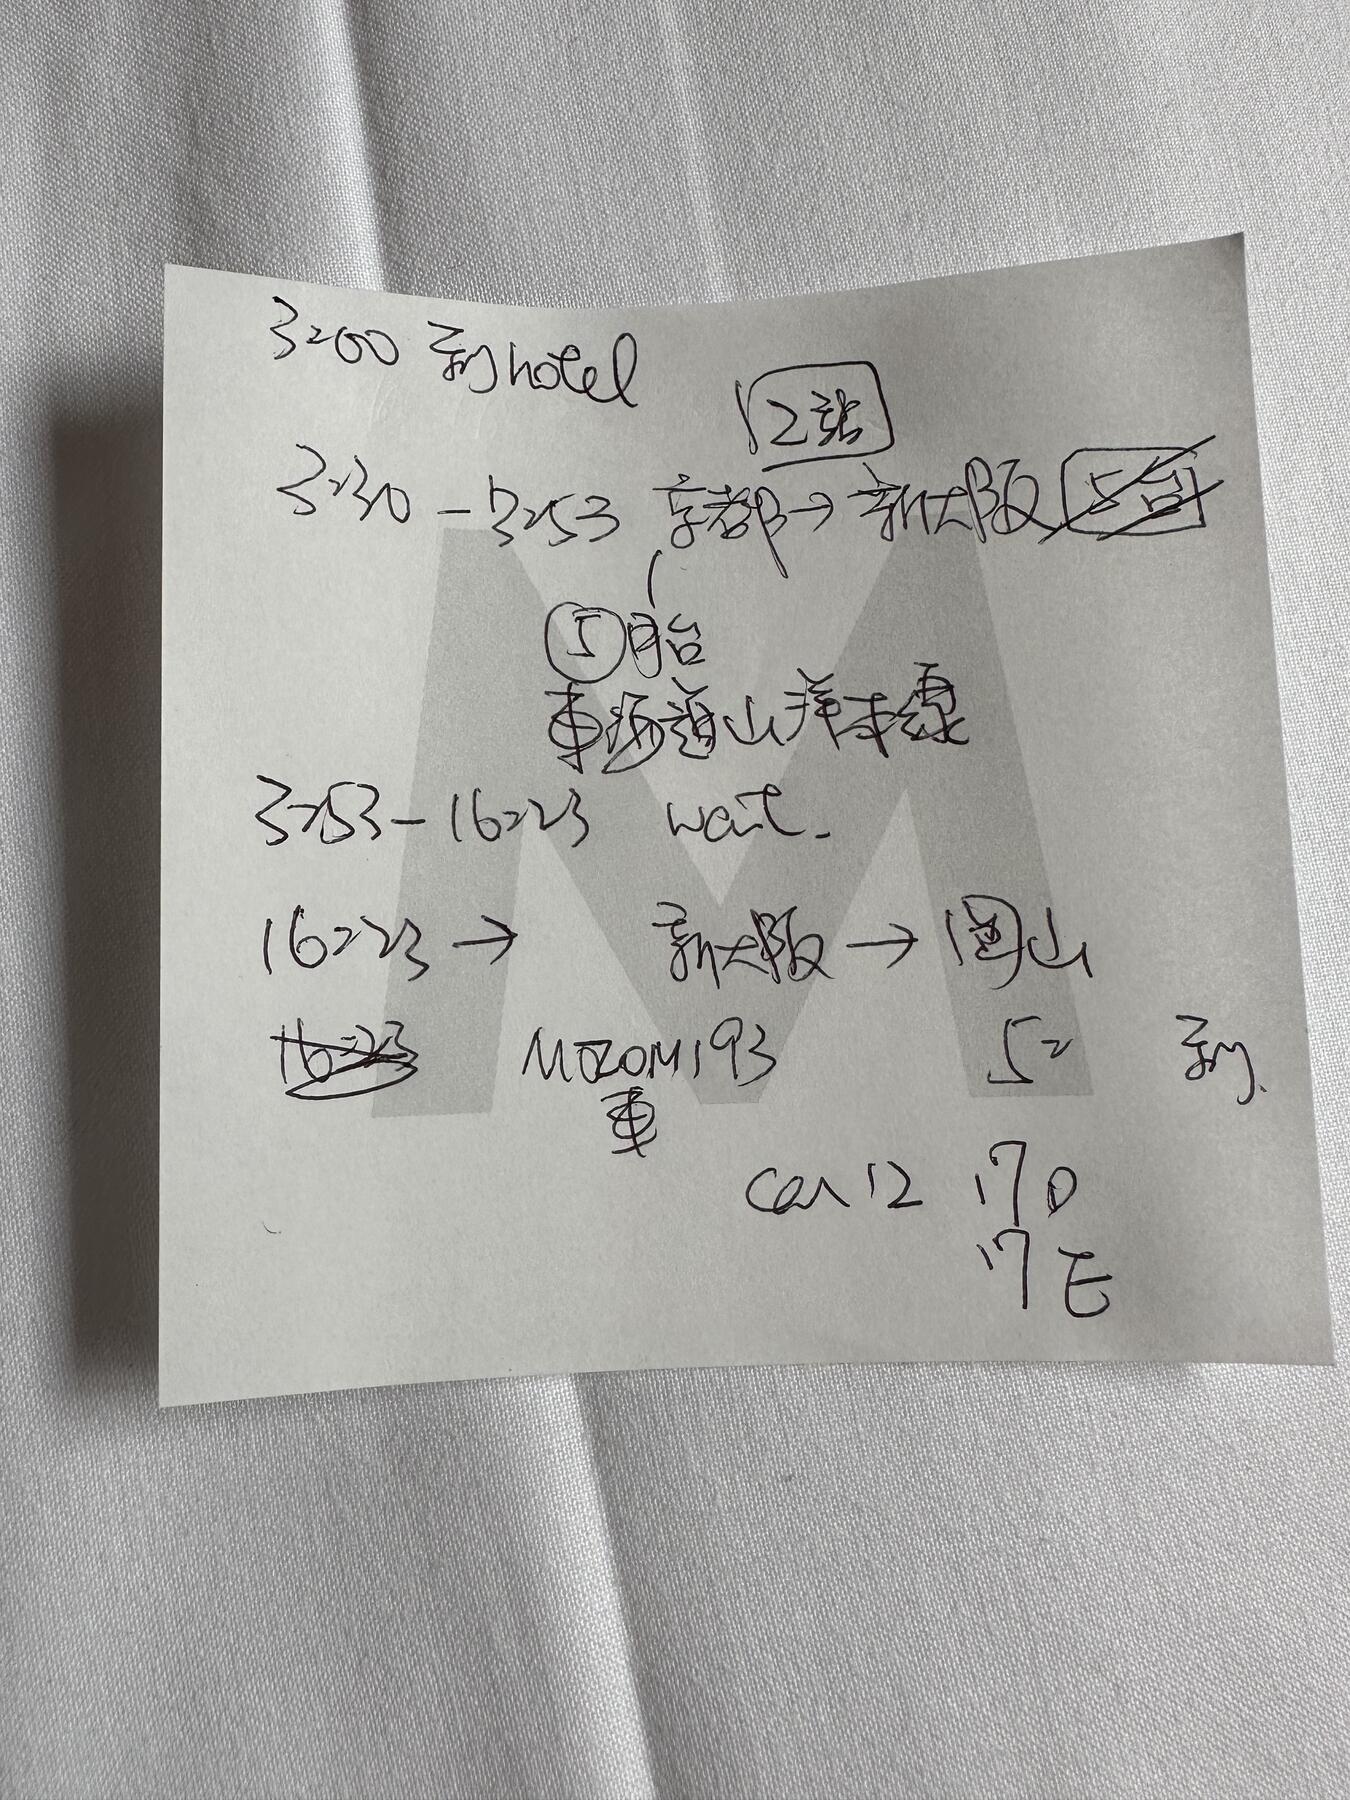 3:00 到hotel
12站
3:30 - 3:53 京都→新大阪
⑤月台
東海道山洋本線
3:53 - 16:23 wait.
16:23 → 新大阪 → 岡山
16:23 NOZOMI 93 5: 到
車
car 12 17D
17E
M